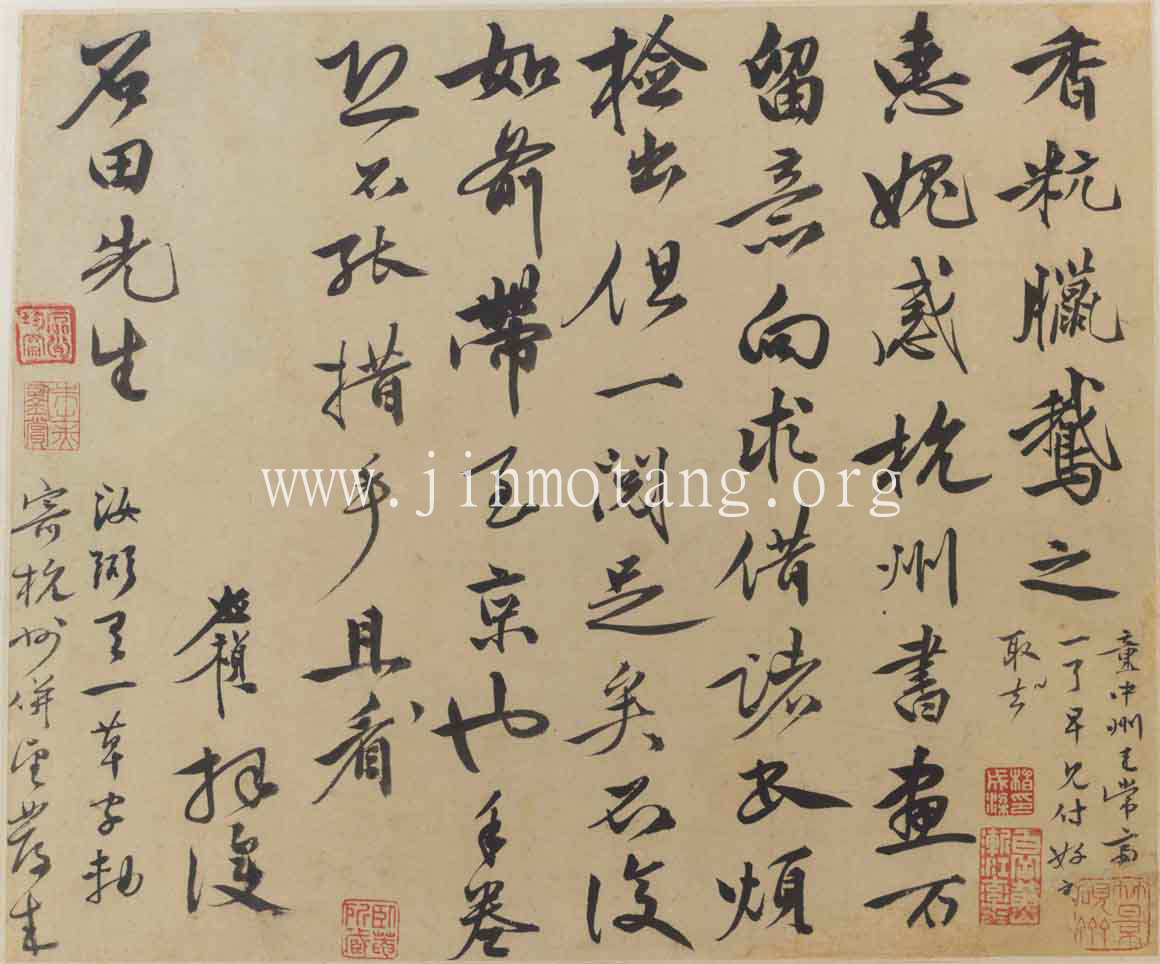 香粇臘鵝之
惠媿感杭州書畫不
留意向求借諸書煩
檢出但一閱足矣不復
如前帶至京也手卷
恐不措手且看
應禎拜復
石田先生
汝弼有一草字
寄杭州併望發來
童中州
一了早
取去
臥菴所藏
www.jinmotang.org